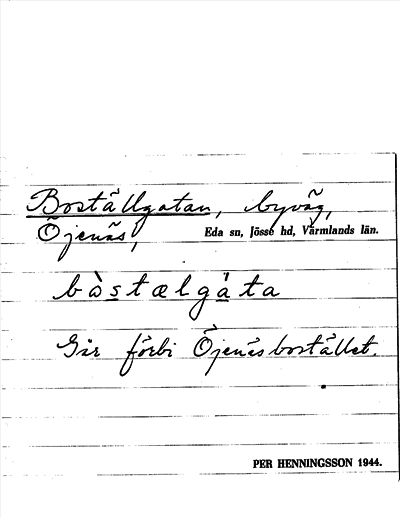 Boställgatan, byväg,
Öjenäs,
Eda sn, Jösse hd, Värmlands län.
bòstælgàta
Går förbi Öjenäsbostället.
PER HENNINGSSON 1944.